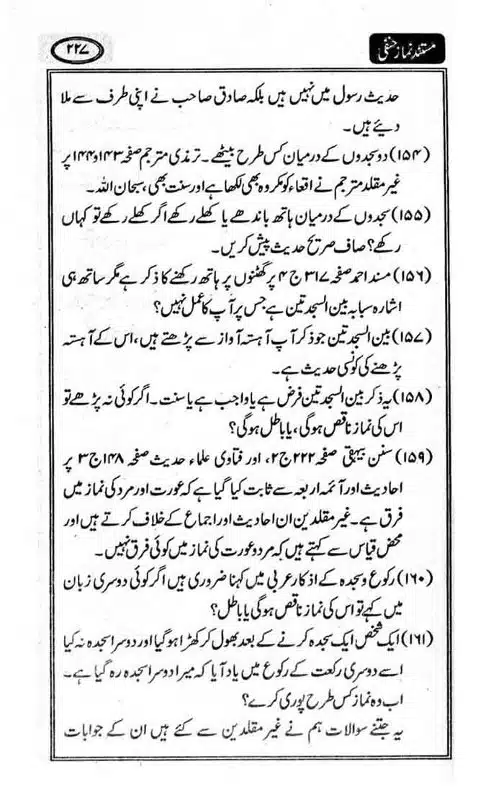 مستند نماز حنفی
۲۲۷
حدیث رسول میں نہیں ہیں بلکہ صادق صاحب نے اپنی طرف سے ملا
دیئے ہیں۔
(۱۵۴) دو سجدوں کے درمیان کس طرح بیٹھے۔ ترمذی مترجم صفحہ ۱۴۳ و ۱۴۴ پر
غیر مقلد مترجم نے اقعاء کو مکروہ بھی لکھا ہے اور سنت بھی، سبحان اللہ۔
(۱۵۵) سجدوں کے درمیان ہاتھ باندھے یا کھلے رکھے اگر کھلے رکھے تو کہاں
رکھے؟ صاف صریح حدیث پیش کریں۔
(۱۵۶) مسند احمد صفحہ ۳۱۷ ج ۴ پر گھٹنوں پر ہاتھ رکھنے کا ذکر ہے مگر ساتھ ہی
اشارہ سبابہ بین السجدتین ہے جس پر آپ کا عمل نہیں؟
(۱۵۷) بین السجدتین جو ذکر آپ آہستہ آواز سے پڑھتے ہیں، اس کے آہستہ
پڑھنے کی کونسی حدیث ہے۔
(۱۵۸) یہ ذکر بین السجدتین فرض ہے یا واجب ہے یا سنت۔ اگر کوئی نہ پڑھے تو
اس کی نماز ناقص ہوگی، یا باطل ہوگی؟
(۱۵۹) سنن بیہقی صفحہ ۲۲۲ ج ۲، اور فتاوی علماء حدیث صفحہ ۱۴۸ ج ۳ پر
احادیث اور آئمہ اربعہ سے ثابت کیا گیا ہے کہ عورت اور مرد کی نماز میں
فرق ہے۔ غیر مقلدین ان احادیث اور اجماع کے خلاف کرتے ہیں اور
محض قیاس سے کہتے ہیں کہ مرد و عورت کی نماز میں کوئی فرق نہیں۔
(۱۶۰) رکوع و سجدہ کے اذکار عربی میں کہنا ضروری ہیں اگر کوئی دوسری زبان
میں کہے تو اس کی نماز ناقص ہوگی یا باطل؟
(۱۶۱) ایک شخص ایک سجدہ کرنے کے بعد بھول کر کھڑا ہو گیا اور دوسرا سجدہ نہ کیا
اسے دوسری رکعت کے رکوع میں یاد آیا کہ میرا دوسرا سجدہ رہ گیا ہے۔
اب وہ نماز کس طرح پوری کرے؟
یہ جتنے سوالات ہم نے غیر مقلدین سے کئے ہیں ان کے جوابات